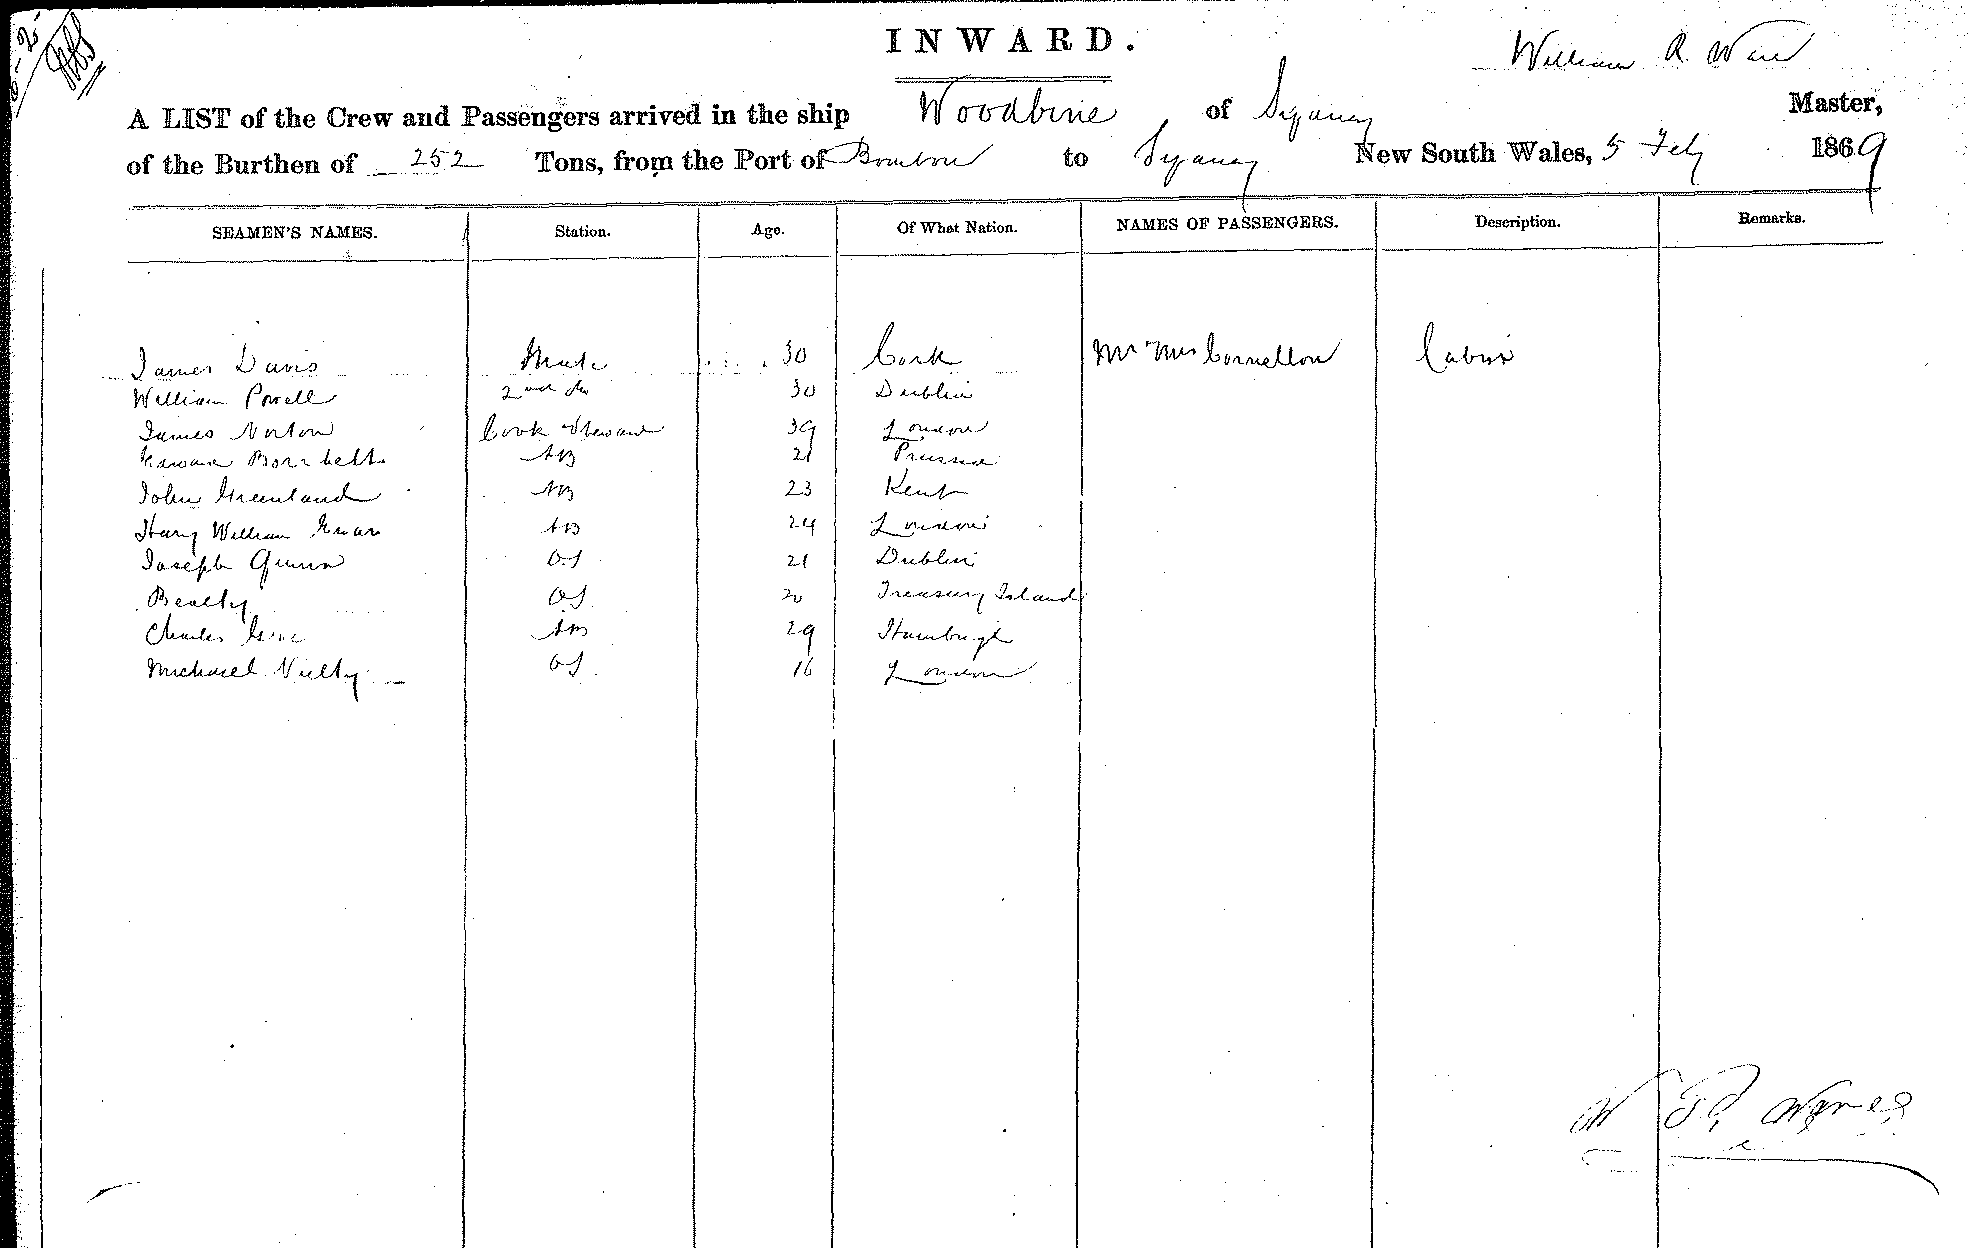 INWARD.
William R
A LIST of the Crew and Passengers arrived in the ship Woodbine of Sydney Master,
of the Burthen of 252 Tons, from the Port of Bourbon to Sydney New South Wales, 5 Feby 1869
SEAMEN'S NAMES. Station. Age. Of What Nation. NAMES OF PASSENGERS. Description. Remarks.
James Davis Mate 30 Cork Mr Mrs Cornellon Cabin
William Powell 2nd do 30 Dublin
James Norton Cook Steward 39 London
AB 21 Prussia
John Greenland AB 23 Kent
Harry William AB 24 London
Joseph Quinn OS 21 Dublin
Beatty OS 20 Treasury Island
Charles AB 29 Hamburgh
Michael OS 16 London